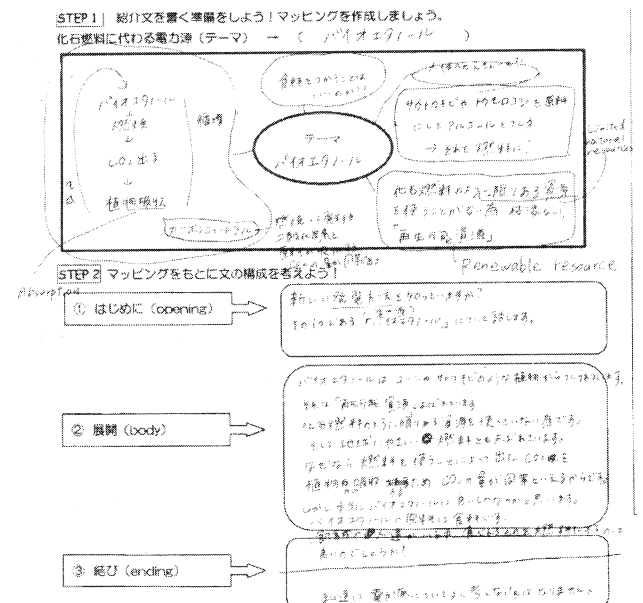 STEP 1 紹介文を書く準備をしよう！マッピングを作成しましょう。
化石燃料に代わる電力源（テーマ） → （ バイオエタノール ）
食料をつかうことは
いいのか??
バイオエタノール
燃焼
CO₂ 出る
植物吸収
循環
カーボンニュートラル
テーマ
バイオエタノール
サトウキビやトウモロコシを原料
にしてアルコールをつくる
→ それを燃料に!
Limited natural resources
化石燃料のように限りある資源
を使うことがない為
「再生可能資源」
Renewable resource
Absorption
STEP 2 マッピングをもとに文の構成を考えよう！
① はじめに（opening）
新しい発電方法を知っていますか？
その1つである「バイオエタノール」について話します。
② 展開（body）
バイオエタノールはコーンやサトウキビのような植物からつくられています。
それは「再生可能資源」とよばれています
化石燃料のように限りある資源を使っていない為です。
そして地球にやさしい燃料ともよばれています。
なぜなら燃料を使うことによって出たCO₂を
植物が吸収するため CO₂の量が同等といえるからです。
しかし本当にバイオエタノールは良いものなのかと思います。
バイオエタノールの原料は食料です。
良いのでしょうか？
③ 結び（ending）
私達は電力源についてよく考えなければなりません。